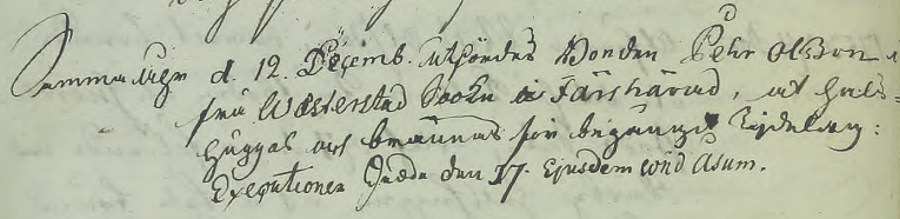 Samma dagen d. 12. Decemb. utfördes Bonden Pehr Olsson i
från Wästerstad Sockn i Färs härad, at hals-
huggas och brännas för begångit Tidelag:
Executionen skedde den 17. Ejusdem wid Åsum.